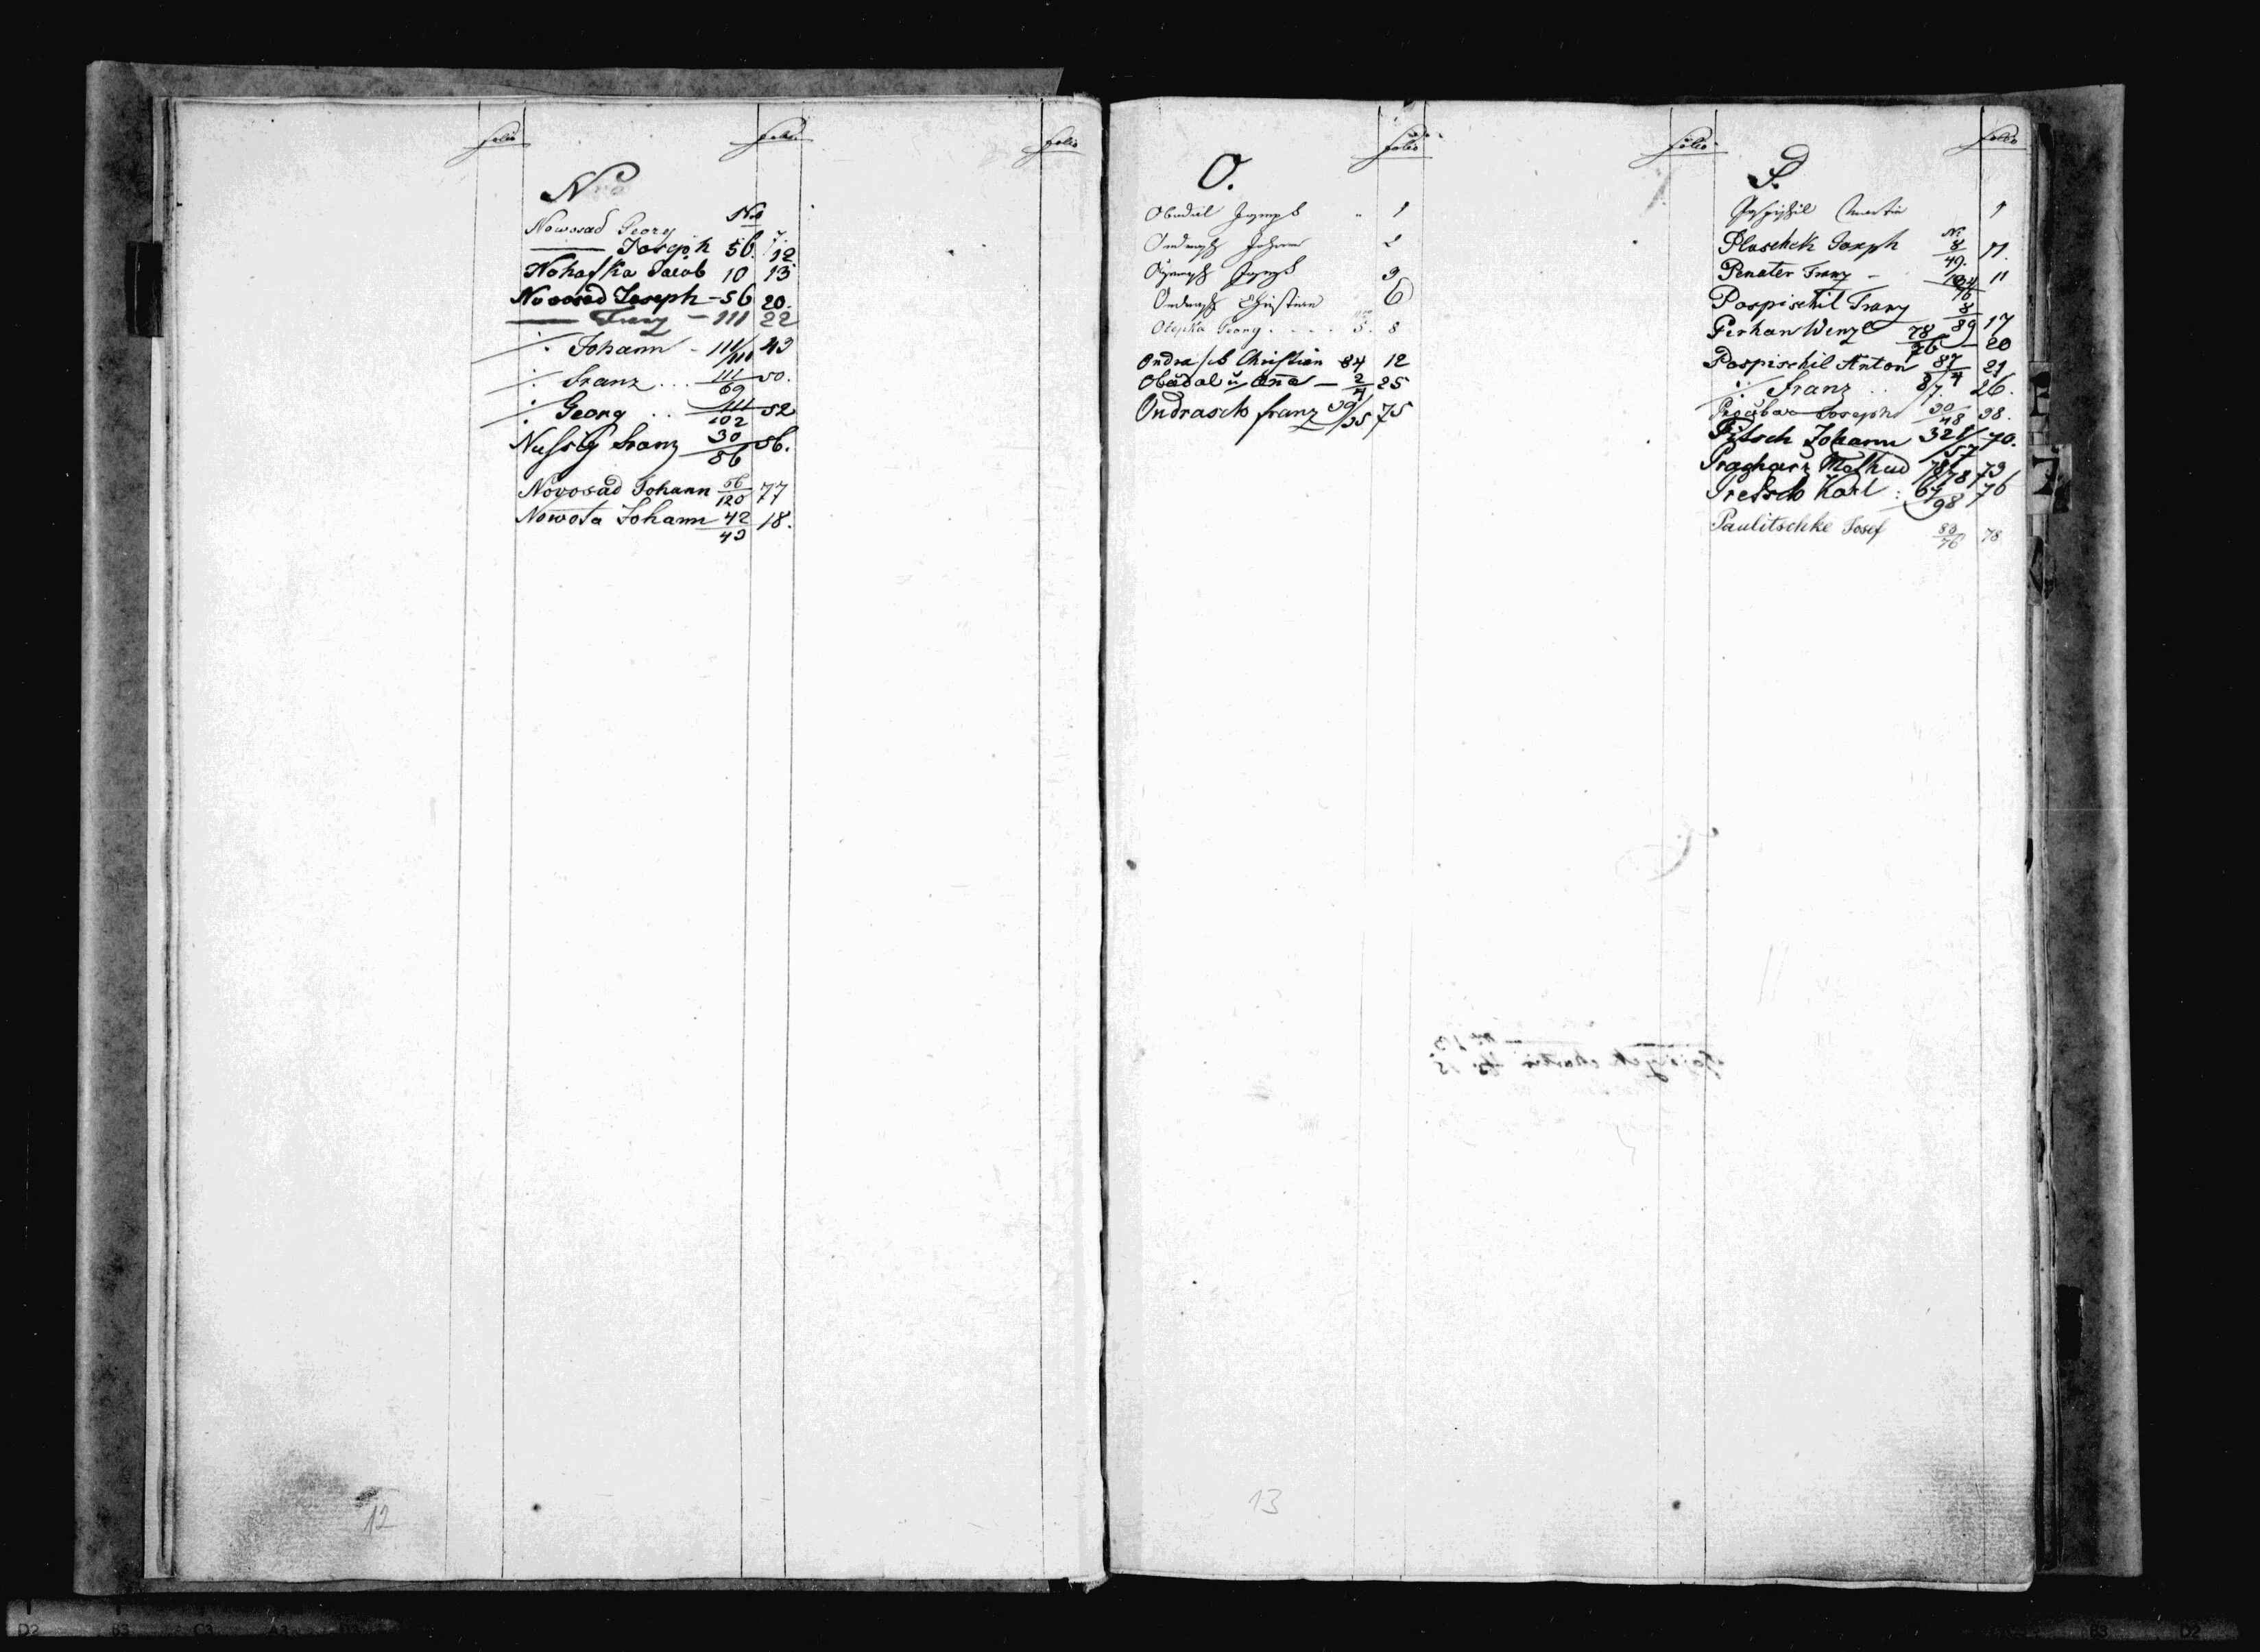 folio folio folio
N
No
Nowosad Georg 7.
—— Joseph 56. 12
Nohafka Jacob 10 13
Novosad Joseph - 56 20.
—— Franz - 111 22
Johann - 111/111 43
Franz ... 111/69 50.
Georg .. 111/102 52
Franz 30/86 56.
Novosad Johann 56/120 77
Nowota Johann 42/43 18.
12
folio folio folio
O.
Obadal Joseph 1
Ondrasch Johann 2
Joseph 3
Ondrasch Christian 6
Otepka Georg . . . . 5. 8
Ondrasch Christian 84 12
Obadal u Ana — 2/4 25
Ondrasch franz 39/35 75
13
P.
Pospischil Martin 1
No
Plaschek Joseph 8/49. 11.
Penater Franz - 104/76 11
Pospischil Franz 8/89 17
Perhan Wenzl 78/26 — 20
Pospischil Anton 87/4 21
Franz .. 87. 26.
Joseph 30/48 38.
Pitsch Johann 321/57 70.
78/78 73
Pretsch Karl : 67/98 76
Paulitschke Josef 83/76 78